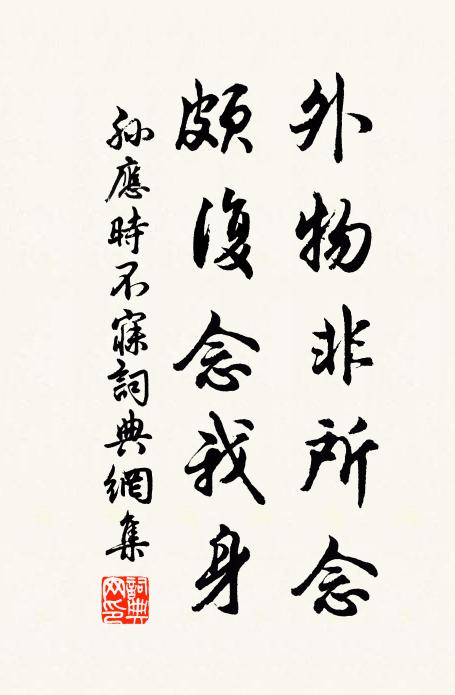 外物非所念
頗復念我身
孫應時不寐詞典網集
詞典网印